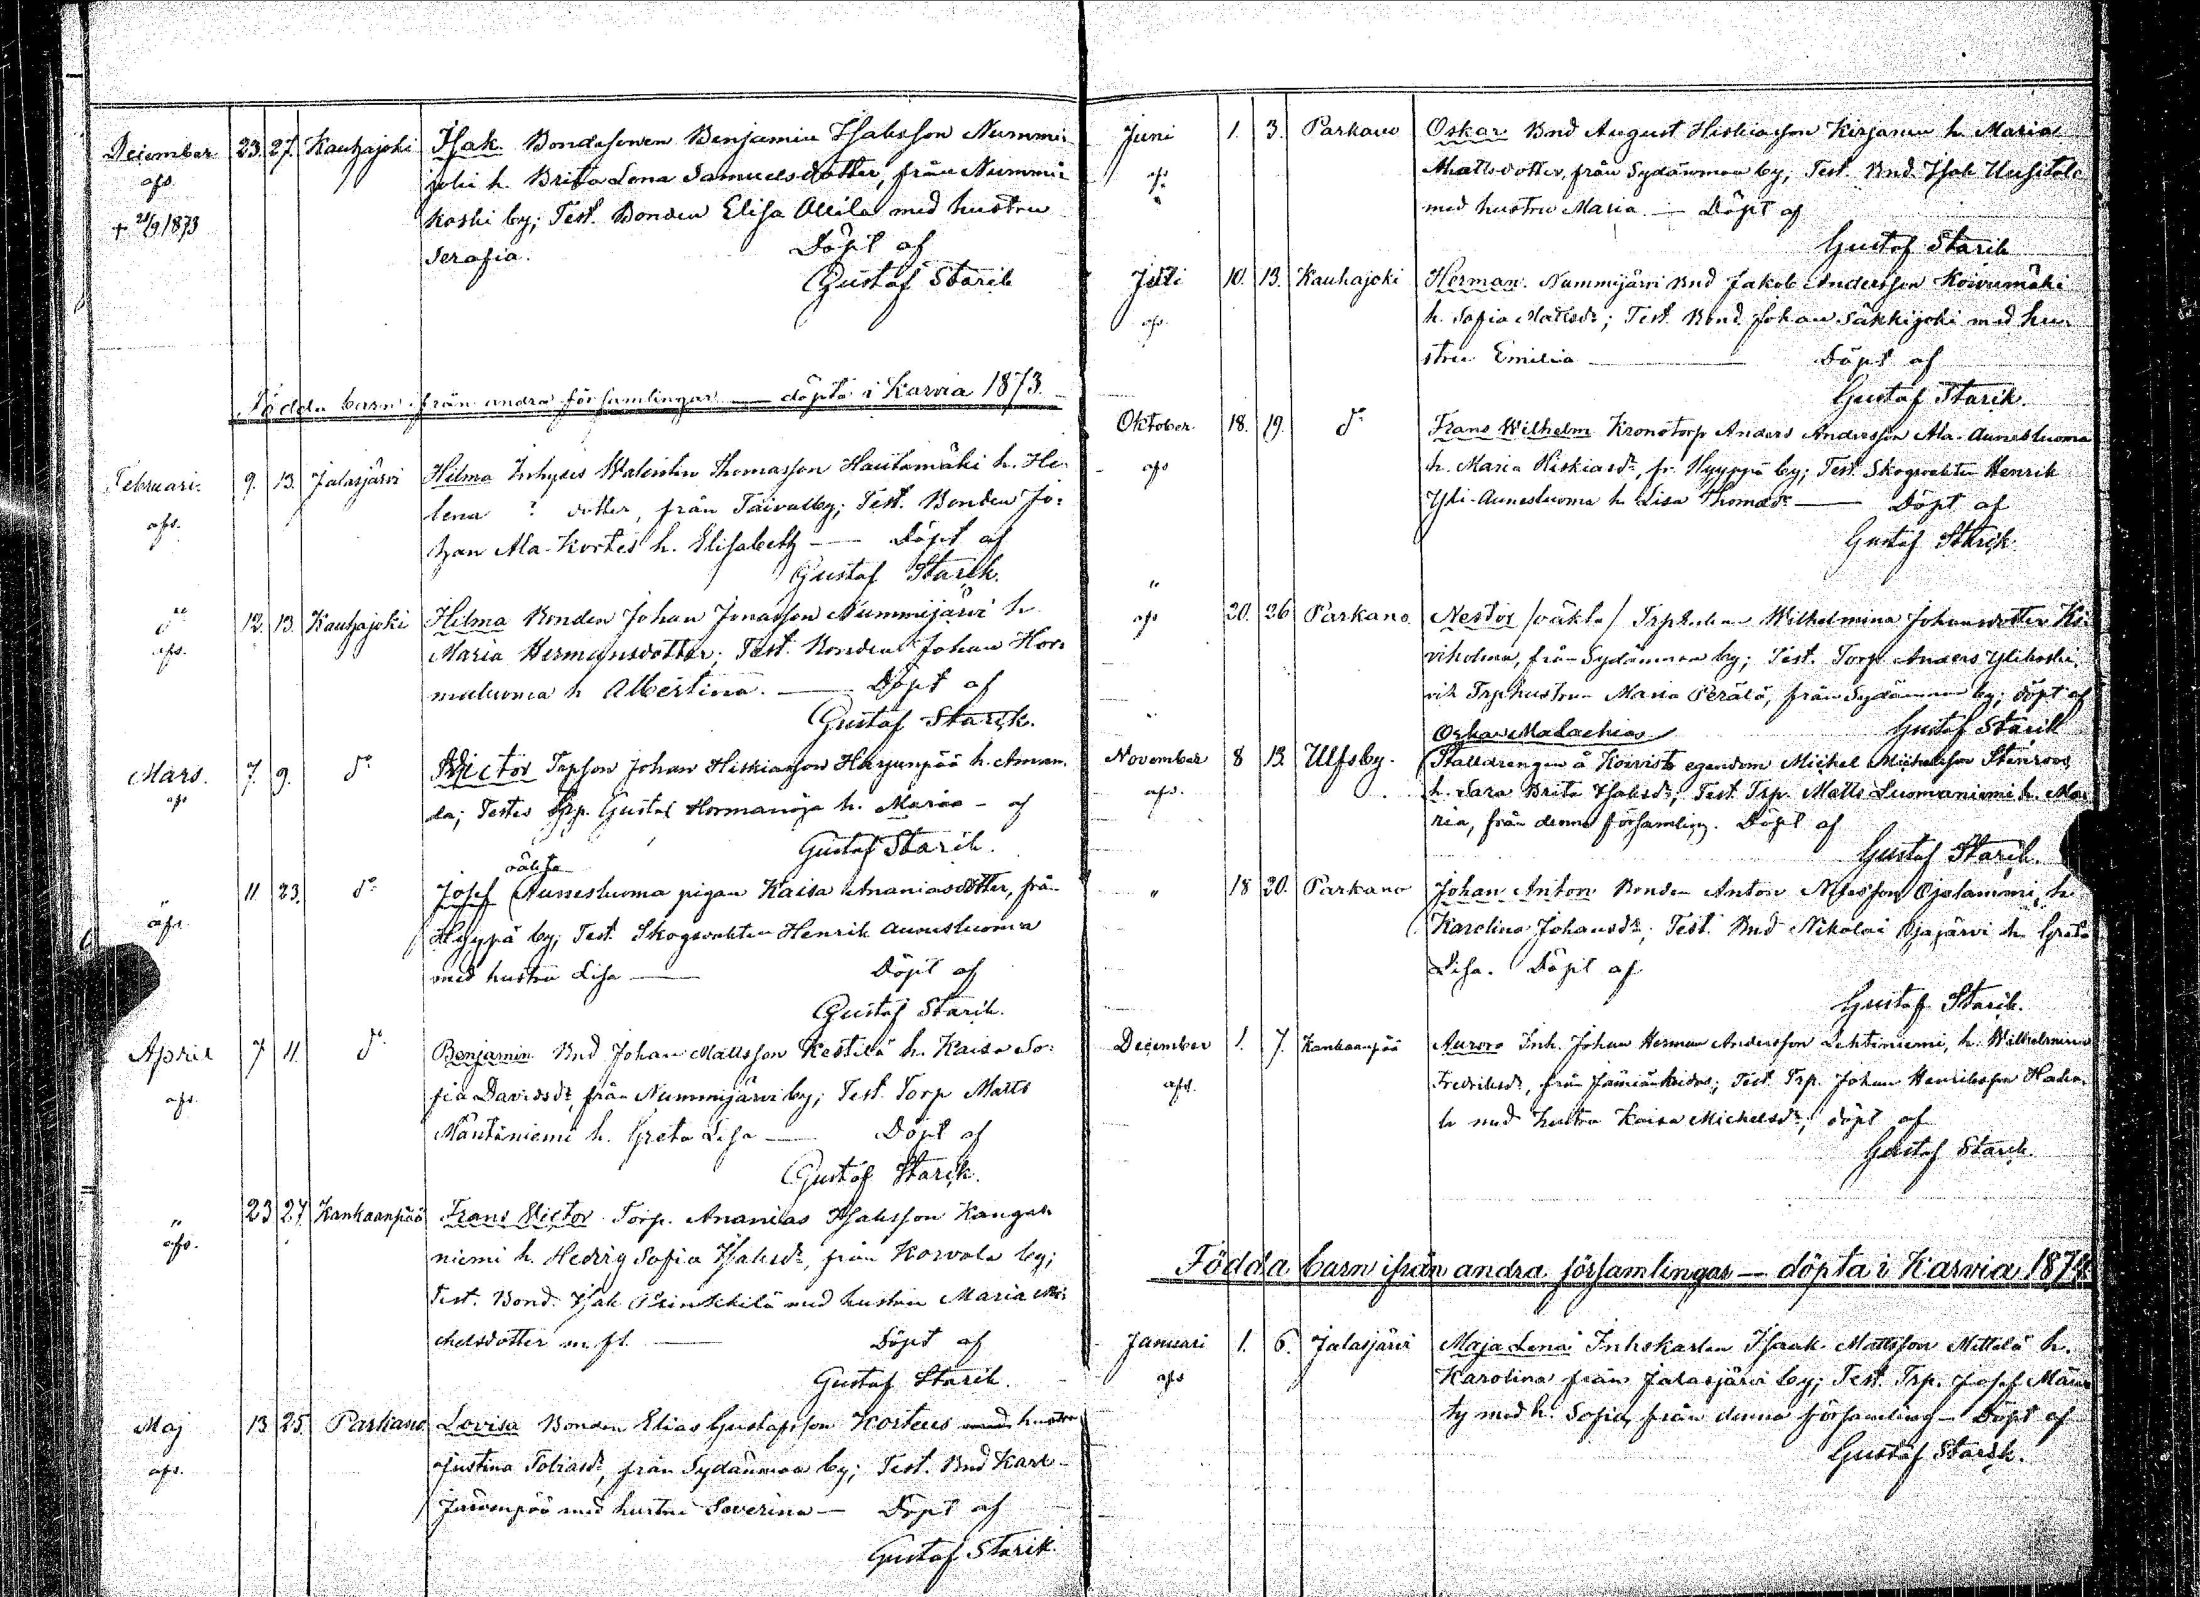 December 23. 27. Kauhajoki Isak Bondesonen Benjamin Isaksson Nummi-
afs. joki h. Brita Lena Samuelsdotter, från Nummi-
† 21/9 1873 koski by; Test. Bonden Elisa Allila med hustru
Serafia. Döpt af
Gustaf Starck
Födda barn ifrån andra församlingar — döpta i Karvia 1873.
Februari. 9. 13. Jalasjärvi Hilma Inhyses Walentin Thomasson Hautamäki h. He-
afs. lena ? dotter, från Taivalby; Test. Bonden Jo-
han Ala-Kortes h. Elisabeth — Döpt af
Gustaf Starck.
do 12. 13. Kauhajoki Hilma Bonden Johan Jonasson Nummijärvi h
afs. Maria Hermansdotter; Test. Bonden Johan Hor-
maluoma h Albertina. — Döpt af
Gustaf Starck.
Mars. 7. 9. do Victor Trpson Johan Hiskiasson Harjunpää h. Aman-
afs da; Testes Trp. Gustaf Hormanoja h. Maria - af
Gustaf Starck.
oäkta
" 11 23. do Josef Aunesluoma pigan Kaisa Ananiasdotter, från
afs. Hyypä by; Test. Skogsvakten Henrik Aunesluoma
med hustru Lisa — Döpt af
Gustaf Starck.
April 7 11. do Benjamin Bnd Johan Mattsson Kestilä h. Kaisa So-
afs. fia Davidsdr, från Nummijärvi by; Test. Torp Matts
Mäntäniemi h. Greta Lisa — Döpt af
Gustaf Starck.
" 23 27 Kankaanpää Frans Victor Torp. Ananias Isaksson Kangas
afs. niemi h. Hedvig Sofia Isaksdr, från Korvala by;
Test. Bond. Isak med hustru Maria Mi-
chelsdotter m. fl. — Döpt af
Gustaf Starck.
Maj 13 25. Parkano Lovisa Bonden Elias Gustafsson Korteus med hustru
afs. Justina Tobiasdr, från Sydänmaa by; Test. Bnd Karl
Järvenpää med hustru Severina — Döpt af
Gustaf Starck.
Juni 1. 3. Parkano Oskar Bnd August Hiskiasson Kirjanen h. Maria
afs Mattsdotter, från Sydänmaa by; Test. Bnd Isak Uusitalo
" med hustru Maria. — Döpt af
Gustaf Starck
Juli 10. 13. Kauhajoki Herman. Nummijärvi Bnd Jakob Andersson Koivumäki
afs. h. Sofia Mattsdr; Test. Bond. Johan Säkkijoki med hu-
stru Emilia — Döpt af
Gustaf Starck.
Oktober 18. 19. do Frans Wilhelm Kronotorp Anders Andersson Ala-Aunesluoma
afs h. Maria Hiskiasdr, fr. Hyyppä by; Test. Skogsvakten Henrik
Yli-Aunesluoma h Lisa Thomasdr — Döpt af
Gustaf Starck.
"
afs 20. 26 Parkano Nestor /oäkta/ Wilhelmina Johansdotter Ki-
viholma, från Sydänmaa by; Test. Torp Anders Ylikoski,
och Trphustrun Maria Perälä, från Sydänmaa by; döpt af
Oskar Malachias Gustaf Starck
November 8 13. Ulfsby. Stalldrengen å Koivisto egendom Michel Michelsson Stenroos
afs. h. Sara Brita Isaksdr; Test. Trp. Matts Luomaniemi h. Ma-
ria, från denna församling. Döpt af
Gustaf Starck.
" 18 20. Parkano Johan Anton Bonden Anton Ojalammi, h.
Karolina Johansdr; Test. Bnd Nikolai Ojajärvi h. Greta
Lisa. Döpt af
Gustaf Starck.
December 1. 7. Kankaanpää Aurora Inh. Johan Herman Andersson Lehtiniemi, h. Wilhelmina
afs. Fredriksdr, från Jämiänkeidas; Test. Trp. Johan Henriksson
med hustru Kaisa Michelsdr; döpt af
Gustaf Starck.
Födda barn ifrån andra församlingar — döpta i Karvia 1874
Januari 1. 6. Jalasjärvi Maja Lena Inhskarlen Isaak Mattsson Mettälä h.
afs Karolina från Jalasjärvi by; Test. Trp. Josef Män-
ty med h. Sofia, från denna församling — Döpt af
Gustaf Starck.